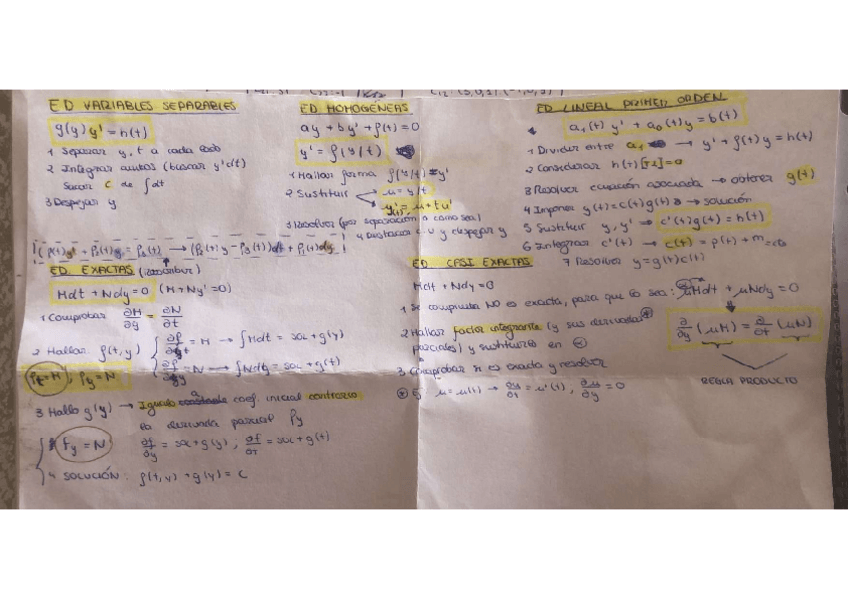 ED VARIABLES SEPARABLES
g(y) y' = h(t)
1 Separar y, t a cada lado
2 Integrar ambos (buscar y'dt)
Sacar c de ∫dt
3 Despejar y
ED HOMOGÉNEAS
ay + by' + f(t) = 0
y' = f(y/t)
1 Hallar forma f(y/t) = y'
2 Sustituir → u = y/t
→ y' = u + tu'
3 Resolver (por separación o como sea)
4 Deshacer c.v y despejar y
ED LINEAL PRIMER ORDEN
a₁(t) y' + a₀(t)y = b(t)
1 Dividir entre a₁ → y' + f(t)y = h(t)
2 Considerar h(t) = 0
3 Resolver ecuación asociada → obtener g(t)
4 Imponer y(t) = c(t)g(t) → solución
5 Sustituir y, y' → c'(t)g(t) = h(t)
6 Integrar c'(t) → c(t) = p(t) + m
7 Resolver y = g(t)c(t)
ED. EXACTAS
Mdt + Ndy = 0 (M + Ny' = 0)
1 Comprobar ∂M/∂y = ∂N/∂t
2 Hallar: f(t,y)
= M → ∫Mdt = sol + g(y)
= N → ∫Ndy = sol + g(t)
ft = M, fy = N
3 Hallo g(y) → Igualo a coef. inicial contrario
la derivada parcial fy
fy = N
∂f/∂y = sol + g(y) ; ∂f/∂t = sol + g(t)
4 SOLUCIÓN: f(t,y) + g(y) = c
ED CASI EXACTAS
Mdt + Ndy = 0
1 Se comprueba NO es exacta, para que lo sea: uMdt + uNdy = 0
2 Hallar factor integrante (y sus derivadas
parciales) y sustituirlo en
∂/∂y (uM) = ∂/∂t (uN)
3 Comprobar si es exacta y resolver
REGLA PRODUCTO
u = u(t) → ∂u/∂t = u'(t) ; ∂u/∂y = 0